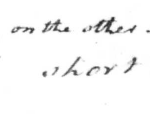 on the other.
short